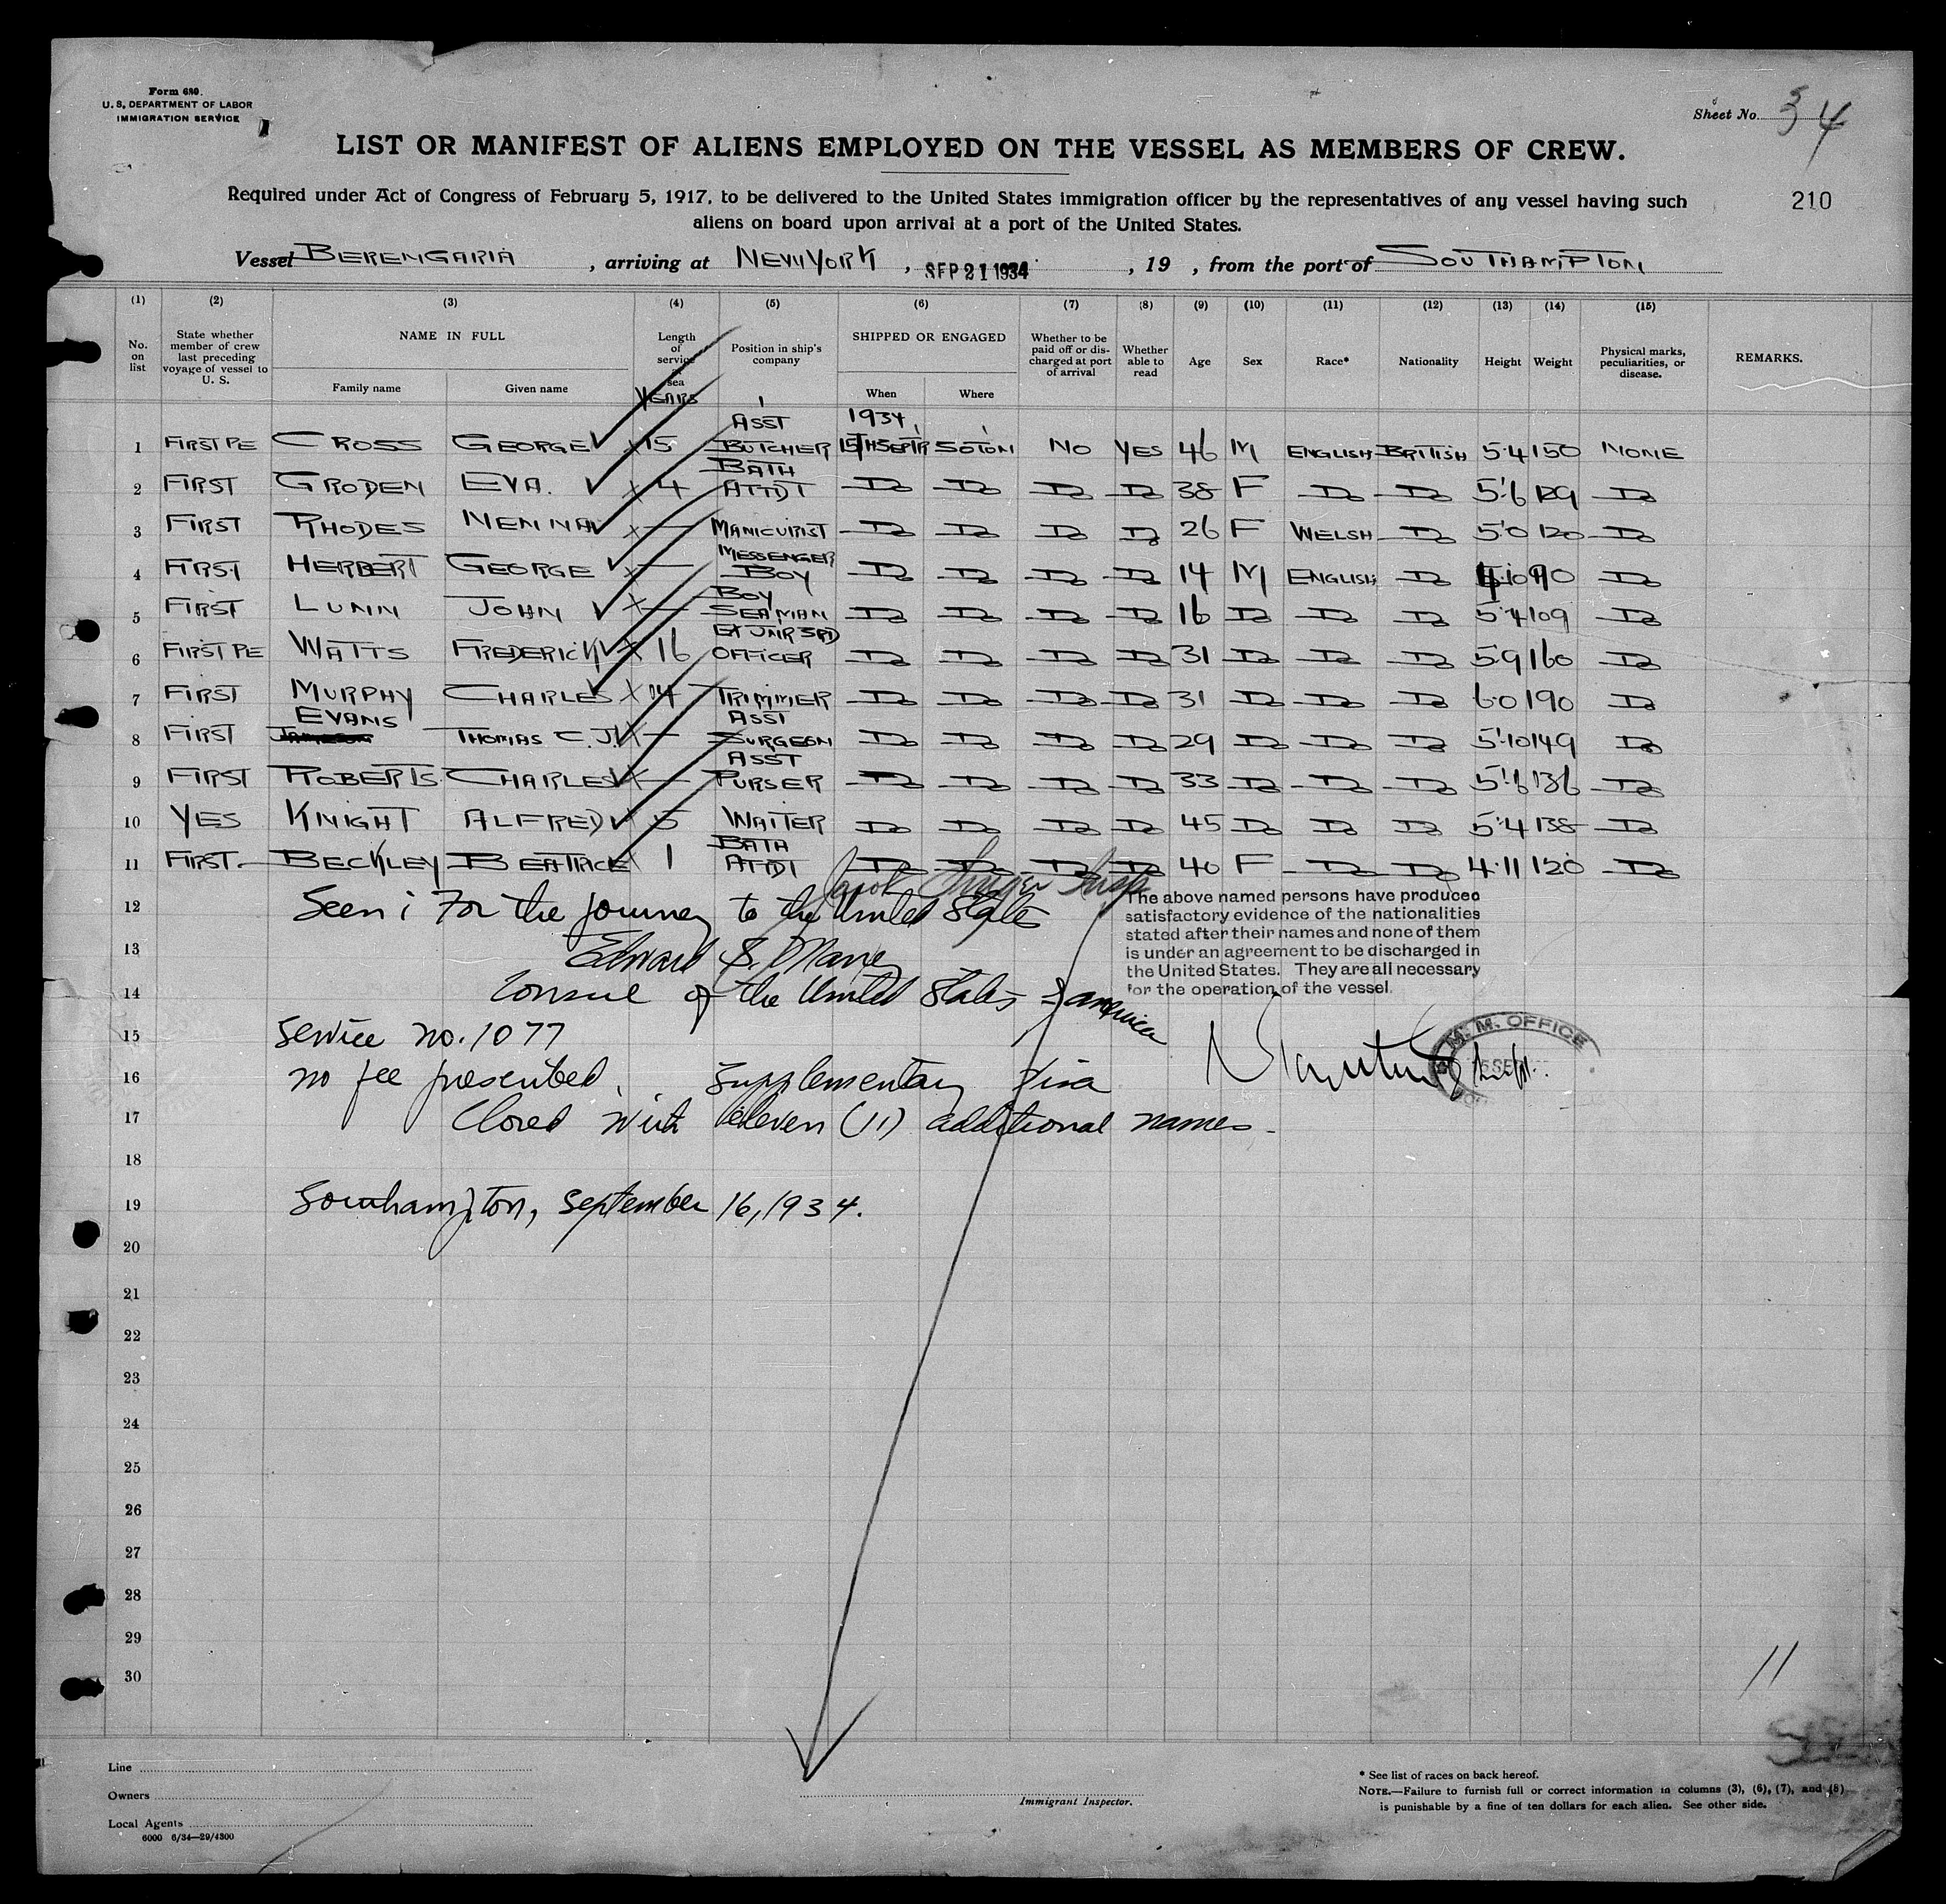 Form 680.
U. S. DEPARTMENT OF LABOR
IMMIGRATION SERVICE
Sheet No. 34
LIST OR MANIFEST OF ALIENS EMPLOYED ON THE VESSEL AS MEMBERS OF CREW.
Required under Act of Congress of February 5, 1917, to be delivered to the United States immigration officer by the representatives of any vessel having such
aliens on board upon arrival at a port of the United States.
210
Vessel BERENGARIA, arriving at NEW YORK, SEP 21 1934, 19 , from the port of SOUTHAMPTON
(1) (2) (3) (4) (5) (6) (7) (8) (9) (10) (11) (12) (13) (14) (15)
No. on list
State whether member of crew last preceding voyage of vessel to U. S.
NAME IN FULL
Family name Given name
Length of service sea YEARS
Position in ship's company
SHIPPED OR ENGAGED
When Where
Whether to be paid off or discharged at port of arrival
Whether able to read
Age Sex Race* Nationality Height Weight
Physical marks, peculiarities, or disease.
REMARKS.
1 FIRST PE CROSS GEORGE 15 ASST BUTCHER 1934, 15TH SEPTR SOTON NO YES 46 M ENGLISH BRITISH 5.4 150 NONE
2 FIRST GRODEN EVA. 4 BATH ATTDT Do Do Do Do 38 F Do Do 5'6 Do
3 FIRST RHODES NENNA — MANICURIST Do Do Do Do 26 F WELSH Do 5'0 120 Do
4 FIRST HERBERT GEORGE — MESSENGER BOY Do Do Do Do 14 M ENGLISH Do 4.10 90 Do
5 FIRST LUNN JOHN — BOY SEAMAN Do Do Do Do 16 Do Do Do 5.4 109 Do
6 FIRST PE WATTS FREDERICK 16 EX JNR 3RD OFFICER Do Do Do Do 31 Do Do Do 5.9 160 Do
7 FIRST MURPHY CHARLES 14 TRIMMER Do Do Do Do 31 Do Do Do 6.0 190 Do
8 FIRST EVANS THOMAS C. J. — ASST SURGEON Do Do Do Do 29 Do Do Do 5'10 149 Do
9 FIRST ROBERTS CHARLES — ASST PURSER Do Do Do Do 33 Do Do Do 5'6 136 Do
10 YES KNIGHT ALFRED 5 WAITER Do Do Do Do 45 Do Do Do 5'4 138 Do
11 FIRST. BECKLEY BEATRICE 1 BATH ATTDT Do Do Do Do 40 F Do Do 4.11 120 Do
12 Seen: For the journey to the United States
13 Edward S. Maney
14 Consul of the United States of America
The above named persons have produced
satisfactory evidence of the nationalities
stated after their names and none of them
is under an agreement to be discharged in
the United States. They are all necessary
for the operation of the vessel
15 Service no. 1077
M. M. OFFICE
16 no fee prescribed. Supplementary Visa
17 Closed with eleven (11) additional names.
18
19 Southampton, September 16, 1934.
20
21
22
23
24
25
26
27
28
29
30
11
Line
Owners
Local Agents
6000 6/34—29/4300
Immigrant Inspector.
* See list of races on back hereof.
NOTE.—Failure to furnish full or correct information in columns (3), (6), (7), and (8)
is punishable by a fine of ten dollars for each alien. See other side.